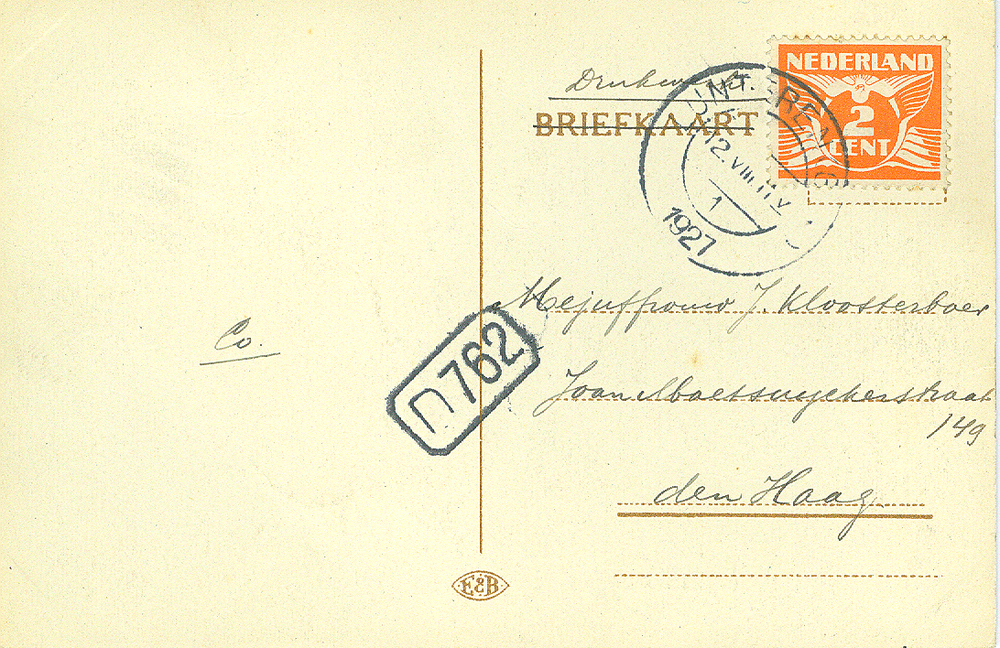 Drukwerk.
BRIEFKAART
NEDERLAND
2
CENT
LUNTEREN
12.VIII.
1
1927
Mejuffrouw J. Kloosterboer
Co.
D 762
Joan Maetsuyckerstraat
149
den Haag
E&B